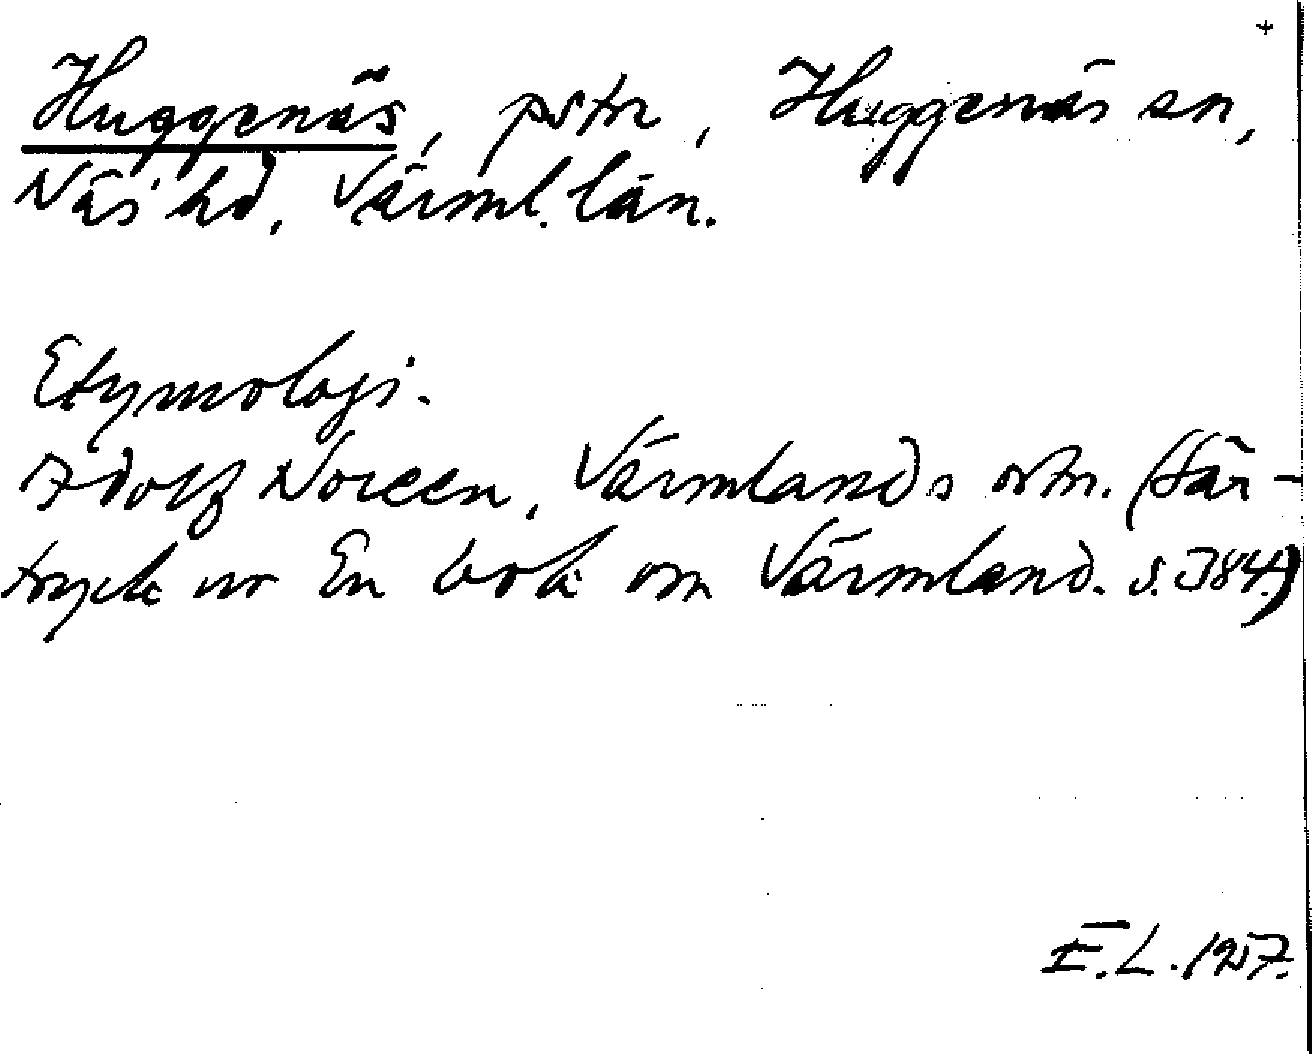 +
Huggenäs, pstn, Huggenäs sn,
Näs hd, Värml. län.
Etymologi.
Adolf Noreen, Värmlands ortn. (Sär-
tryck ur En bok om Värmland. s. 384.)
E.L. 1957.